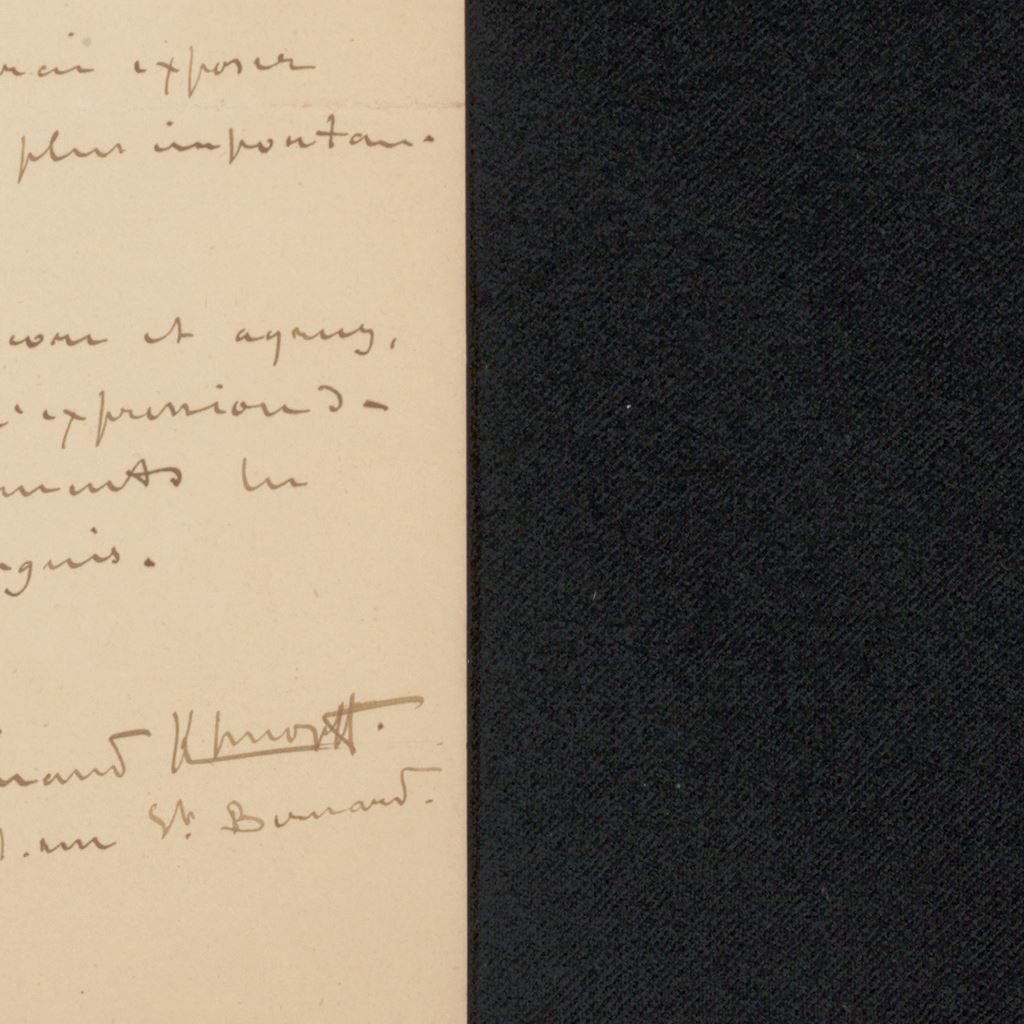 rai exposer
plus importan-
core et agréez,
l'expression de
ments les
ngués.
nand Khnopff.
1. rue St. Bernard.